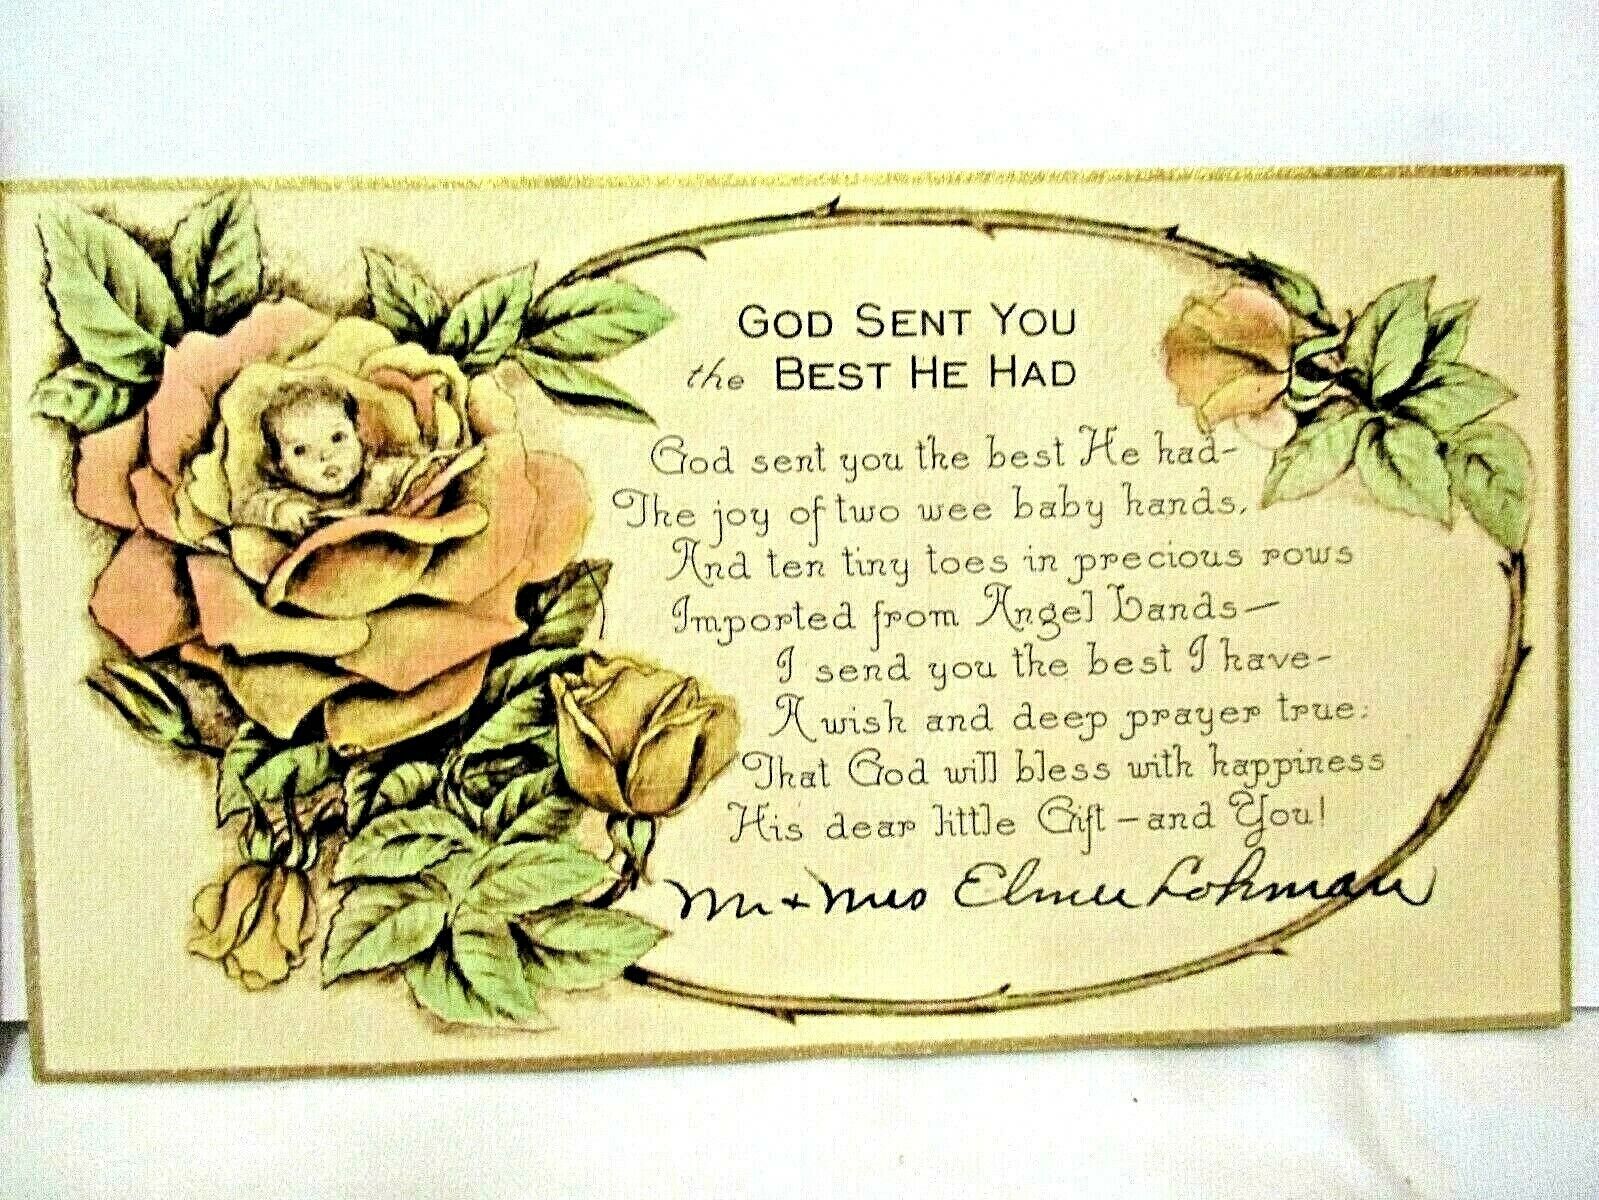 GOD SENT YOU
the BEST HE HAD
God sent you the best He had-
The joy of two wee baby hands,
And ten tiny toes in precious rows
Imported from Angel Lands—
I send you the best I have-
A wish and deep prayer true:
That God will bless with happiness
His dear little Gift - and You!
Mr + Mrs Elmer Lohman